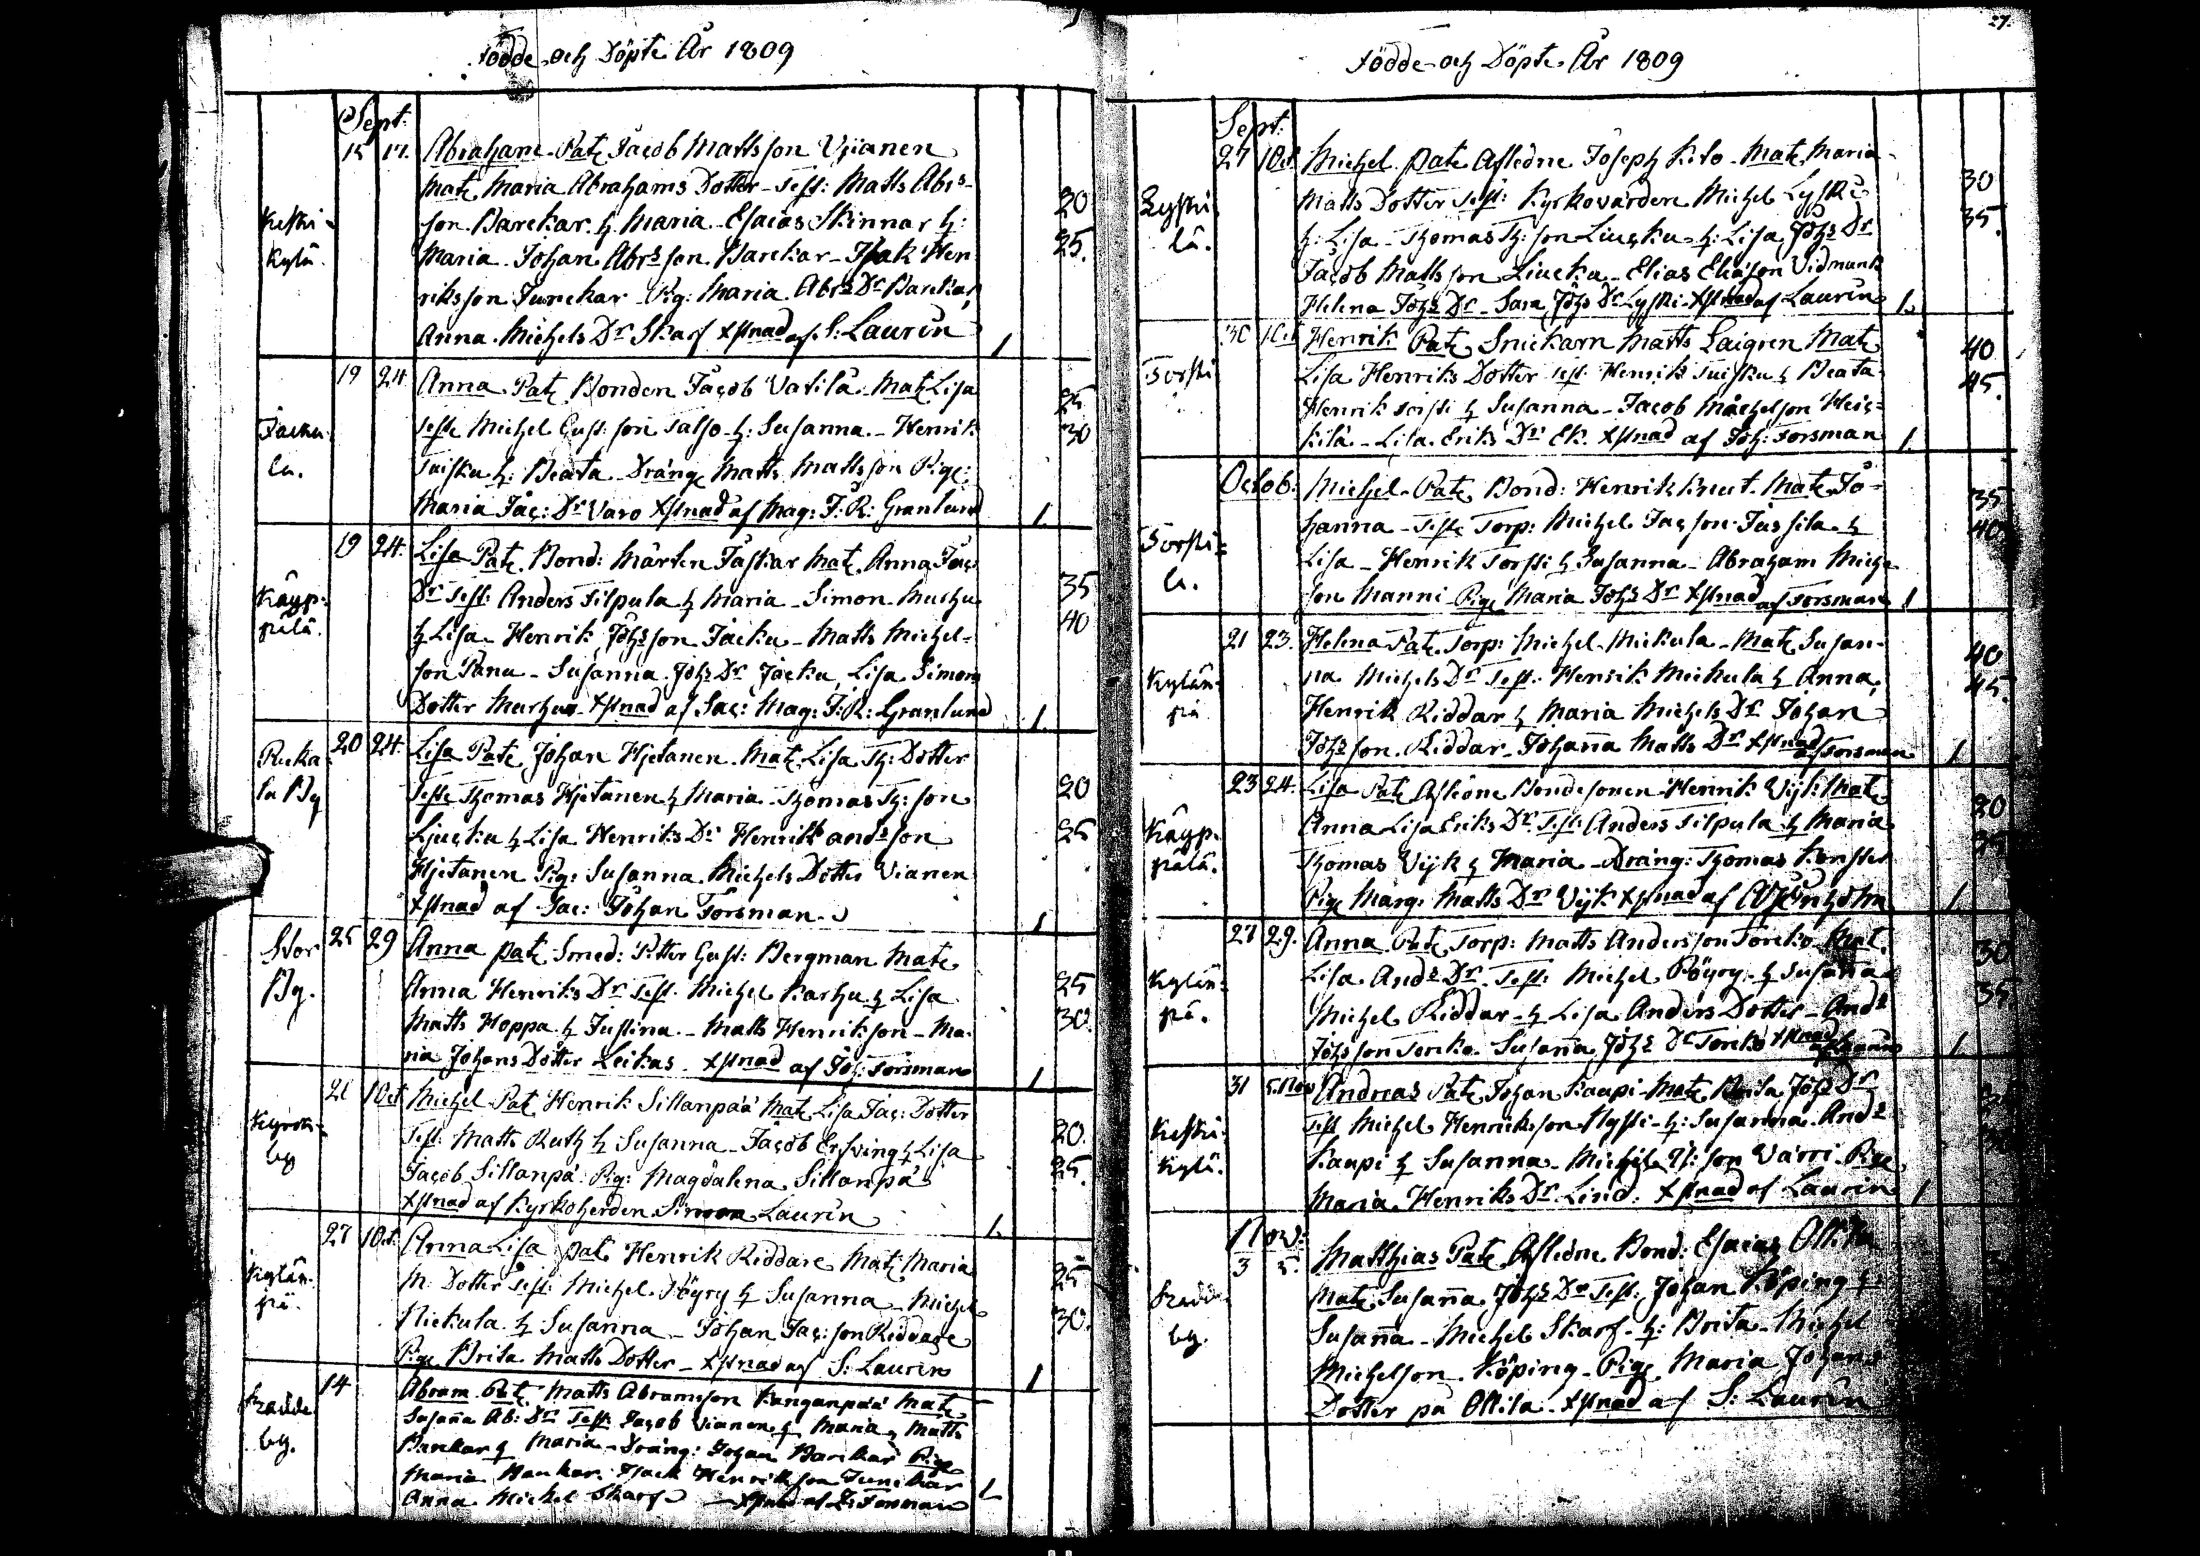 Födde och Döpte År 1809
Sept:
Keski-
Kylä.
15 17. Abraham Pat: Jacob Mattsson Vjianen
Mat: Maria Abrahams Dotter - Test: Matts Abrs-
son Barckar h: Maria - Esaias Skinnar h:
Maria Johan Abrs son Barckar - Isak Hen
riksson Junckar - Pig: Maria Abrs Dr Barckar
Anna Michels Dr Skarf Xstnad af S: Laurin 1
20
25.
Jacku-
la.
19 24 Anna Pat: Bonden Jacob Vatila Mat: Lisa
Test: Michel Gust: son Talso h: Susanna - Henrik
Tuisku h: Beata Dräng Matts Mattsson Pige:
Maria Jac: Dr Varo Xstnad af Mag: J: R: Granlund 1.
25
30
Käyp-
pälä.
19 24. Lisa Pat: Bond: Mårten Jåskar Mat: Anna Jac:
Dr Test: Anders Filpula h Maria - Simon Murhu
h Lisa - Henrik Johs son Jacku - Matts Michel-
son Pana - Susanna Johs Dr Jacku, Lisa Simons
Dotter Murhu - Xstnad af Sac: Mag: J: R: Granlund 1.
35
40
Rucka-
la By
20 24. Lisa Pat: Johan Hjetanen Mat: Lisa Th: Dotter
Test: Thomas Hjetanen h Maria - Thomas Th: son
Ljucku h Lisa Henriks Dr Henrik Ands son
Hjetanen Pig: Susanna Michels Dotter Vianen
Xstnad af Sac: Johan Forsman 1
20
25
Stor
By.
25 29 Anna Pat: Smed: Petter Gust: Bergman Mat:
Anna Henriks Dr Test: Michel Karhu h Lisa
Matts Hoppa h Justina - Matts Henrikson - Ma-
ria Johans Dotter Leikas Xstnad af Joh: Forsman 1
25
30.
Kyrck-
by
26 1 Oct Michel Pat: Henrik Sillanpää Mat: Lisa Jac: Dotter
Test: Matts Ruth h Susanna - Jacob Erfving h Lisa
Jacob Sillanpä Pig: Magdalena Sillanpä
Xstnad af Kyrkoherden Simon Laurin 1.
20.
25.
Kylän-
pä.
27 1 Oct: Anna Lisa Pat: Henrik Riddare Mat: Maria
M: Dotter Test: Michel Pöyry h Susanna - Michel
Mickula h Susanna - Johan Jac: son Riddare
Pige Brita Matts Dotter - Xstnad af S: Laurin 1
25
30.
Kradde
by.
14 Abram Pat: Matts Abramsson Kanganpää Mat:
Susaña Ab: Dr Test: Jacob Vianen h Maria, Matts
Barckar h Maria - Dräng: Johan Barckar Pige
Maria Isack Henrikson Junckar
Anna Michel Skarf - Xstnad af J: Forsman 1
27.
Födde och Döpte År 1809
Sept:
Lyski
lä.
27 1 Oct: Michel Pat: Afledne Joseph Kilo Mat: Maria
Matts Dotter Test: Kyrkovärden Michel Lyski
h: Lisa - Thomas Th: son Liucku - h: Lisa Johs Dr
Jacob Matts son Liucku - Elias Elia son Vidmunk
Helena Johs Dr - Sara Johs Dr Lyski Xstnad af Laurin 1.
30
35.
Torsti
30 1 Oct Henrik Pat: Snickarn Matts Laigren Mat:
Lisa Henriks Dotter Test: Henrik Tuisku h Beata
Henrik Torsti h Susanna - Jacob Michelson Heic-
kilä - Lisa Eriks Dr Ek. Xstnad af Joh: Forsman 1.
40
45.
Octob:
Torsti-
la.
Michel Pat: Bond: Henrik Knut Mat: Jo-
hanna - Test: Torp: Michel Jac: son Jussila h
Lisa - Henrik Torsti h Susanna - Abraham Miche
son Manni Pige Maria Johs Dr Xstnad af Forsman 1
35
40.
Kylän-
pä
21 23. Helena Pat: Torp: Michel Mickula - Mat: Susan-
na Michels Dr Test: Henrik Mickula h Anna,
Henrik Riddar h Maria Michels Dr Johan
Johs son Riddar - Johaña Matts Dr Xstnad af Forsman 1
40
45.
Käyp-
pälä.
23 24. Lisa Pat: Afledne Bondesonen Henrik Vijk Mat:
Anna Lisa Eriks Dr Test: Anders Filpula h Maria
Thomas Vijk h Maria - Dräng: Thomas
Pige Marg: Matts Dr Vijk Xstnad af 1
Kylän-
pä.
27 29. Anna Pat: Torp: Matts Andersson Torcko Mat:
Lisa Ands Dr Test: Michel Pöyry h Susaña
Michel Riddar h Lisa Anders Dotter - Ands
Johs son Torcko Susaña Johs Dr Torcko Xstnad 1
30
35
Keski-
Kylä.
31 5. Nov Andreas Pat: Johan Kaupi Mat: Brita Johs Dr
Test Michel Henriksson Hyssi h: Susanna - Ands
Kaupi h Susanna - Michel son Värri - Pige
Maria Henriks Dr Lind: Xstnad af Laurin 1
Nov:
Kradde-
by.
3 5. Matthias Pat: Afledne Bond: Esaias Ollila
Mat: Susaña Johs Dr Test: Johan Köping h:
Susaña - Michel Skarf h: Brita - Michel
Michelson Köping - Pige Maria Johans
Dotter på Ollila Xstnad af S: Laurin